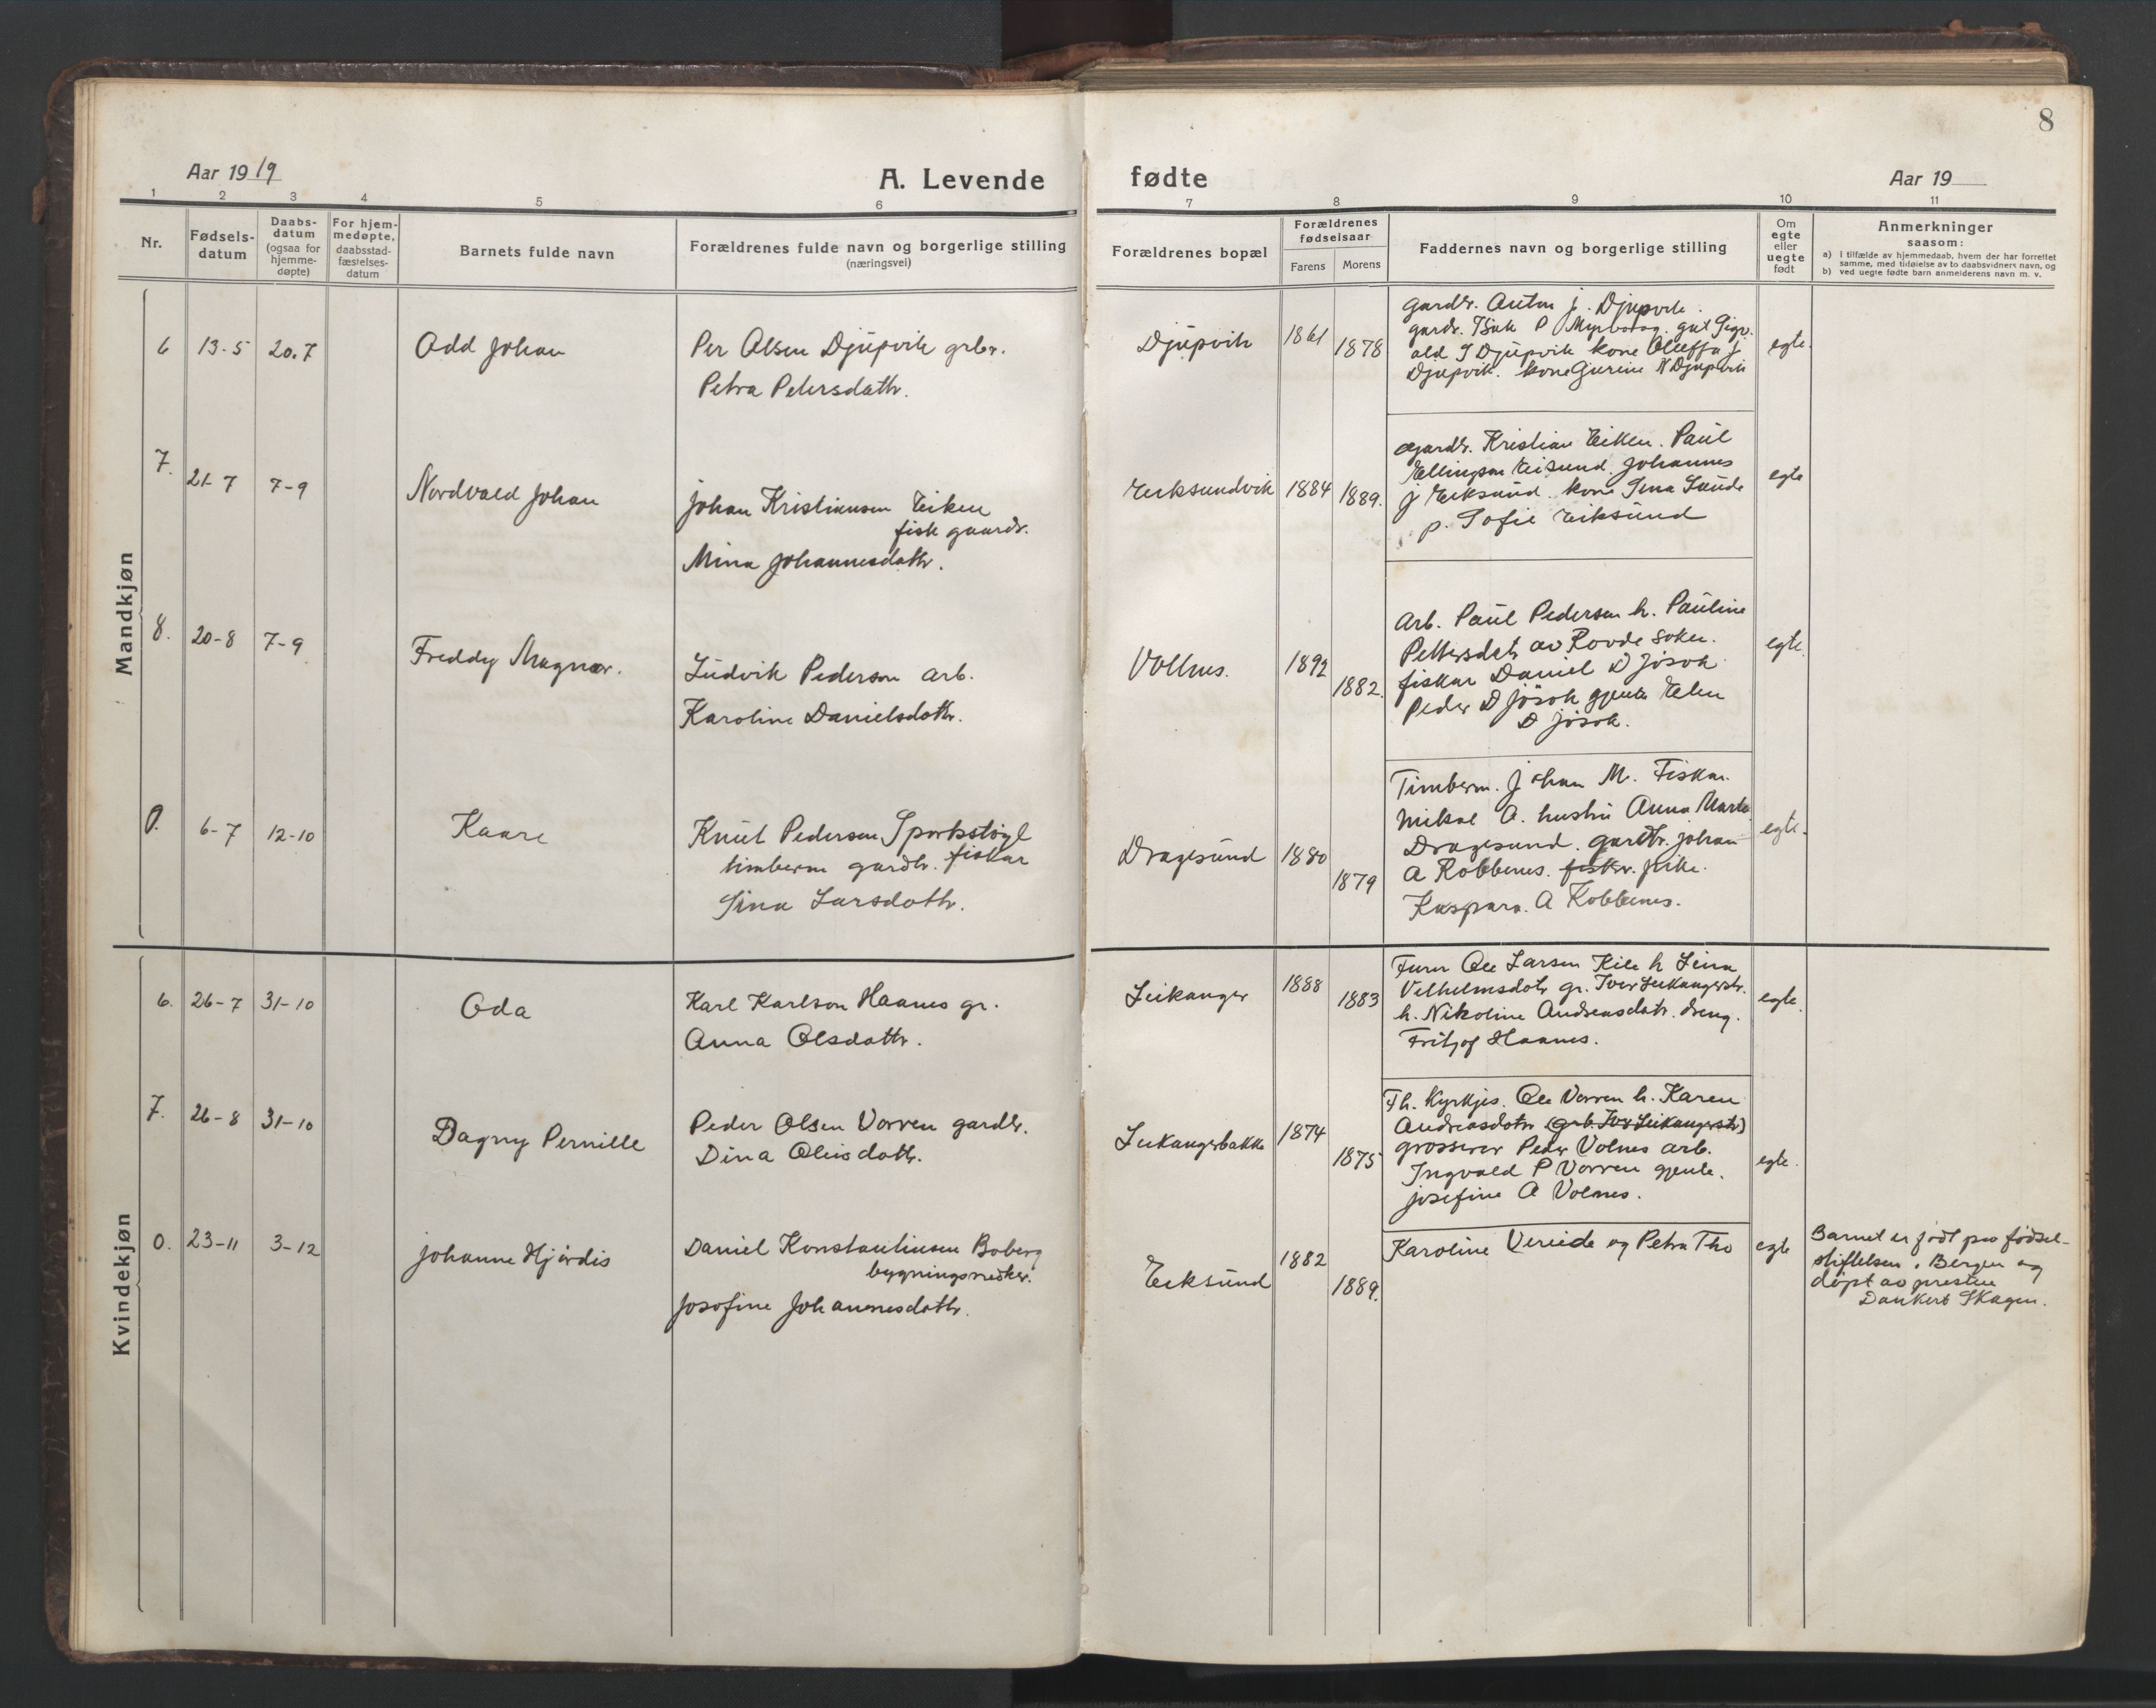 8
Aar 1919
A. Levende
fødte
Aar 19
1 2 3 4 5 6 7 8 9 10 11
Nr.
Fødsels-
datum
Daabs-
datum
(ogsaa for
hjemme-
døpte)
For hjem-
medøpte,
daabsstad-
fæstelses-
datum
Barnets fulde navn
Forældrenes fulde navn og borgerlige stilling
(næringsvei)
Forældrenes bopæl
Forældrenes
fødselsaar
Farens Morens
Faddernes navn og borgerlige stilling
Om
egte
eller
uegte
født
Anmerkninger
saasom:
a) I tilfælde av hjemmedaab, hvem der har forrettet
samme, med tilføielse av to daabsvidners navn, og
b) ved uegte fødte barn anmelderens navn m. v.
Mandkjøn
6 13-5 20.7 Odd Johan
Per Olsen Djupvik grbr.
Petra Petersdatr.
Djupvik 1861 1878
Gardbr. Anton J. Djupvik.
gardr. Isak P Myrvaag. gut Sigv.
ald S Djupvik kone Oleffa J
Djupvik. kone Gurine N Djupvik
egte.
7. 21-7 7-9 Nordvald Johan
Johan Kristiansen Eiken
fisk gaardr.
Mina Johannesdatr.
Eiksundvik 1884 1889.
Gardbr. Kristian Eiken. Paul
Ellingsen Eiksund. Johannes
J Eiksund. kone Sina Sunde
p. Sofie Eiksund
egte
8. 20-8 7-9 Freddy Magnar.
Ludvik Pedersen arb.
Karoline Danielsdotr.
Volnes. 1892 1882.
Arb. Paul Pedersen h. Pauline
Pettersdatr av Rovde Soken.
fiskar Daniel D Jøsok
Peder D Jøsok gjente Elen
D Jøsok.
egte.
9. 6-7 12-10 Kaare
Knut Pedersen Sporkstøyl
timberm gardbr. fiskar
Sina Larsdotr.
Dragesund 1880 1879
Timberm. Johan M. Fiskar.
Mikal A. hustru Anna Marta
Dragesund. gardbr. Johan
A Kobbenes. fiskar. pike.
Kaspara. A Kobbenes.
egte.
Kvindekjøn
6. 26-7 31-10 Oda
Karl Karlson Haanes gr.
Anna Olsdatr.
Leikanger 1888 1883
Furer Ole Larsen Kile h Lina
Vilhelmsdotr gr. Iver Leikangerstr.
h. Nikoline Andreasdatr. dreng.
Fritjof Haanes.
egte.
7. 26-8 31-10 Dagny Pernille
Peder Olsen Vorren gardbr.
Dina Oleisdatr.
Leikangerbakke 1874 1875
Th. Kyrkjes. Ole Vorren h. Karen
Andreasdotr (grb. Iver Leikangerstr)
grosserer Peder Volnes arb.
Ingvald P Vorren gjente.
Josefine A Volnes.
egte.
23-11 3-12 Johanne Hjørdis
Daniel Konstantinsen Boberg
bygningssnedker.
Josefine Johannesdotr.
Eiksund 1882 1889.
Karoline Vereide og Petra Tho
egte
Barnet er født paa fødsel-
stiftelsen i Bergen og
døpt av presten
Dankert Skagen.